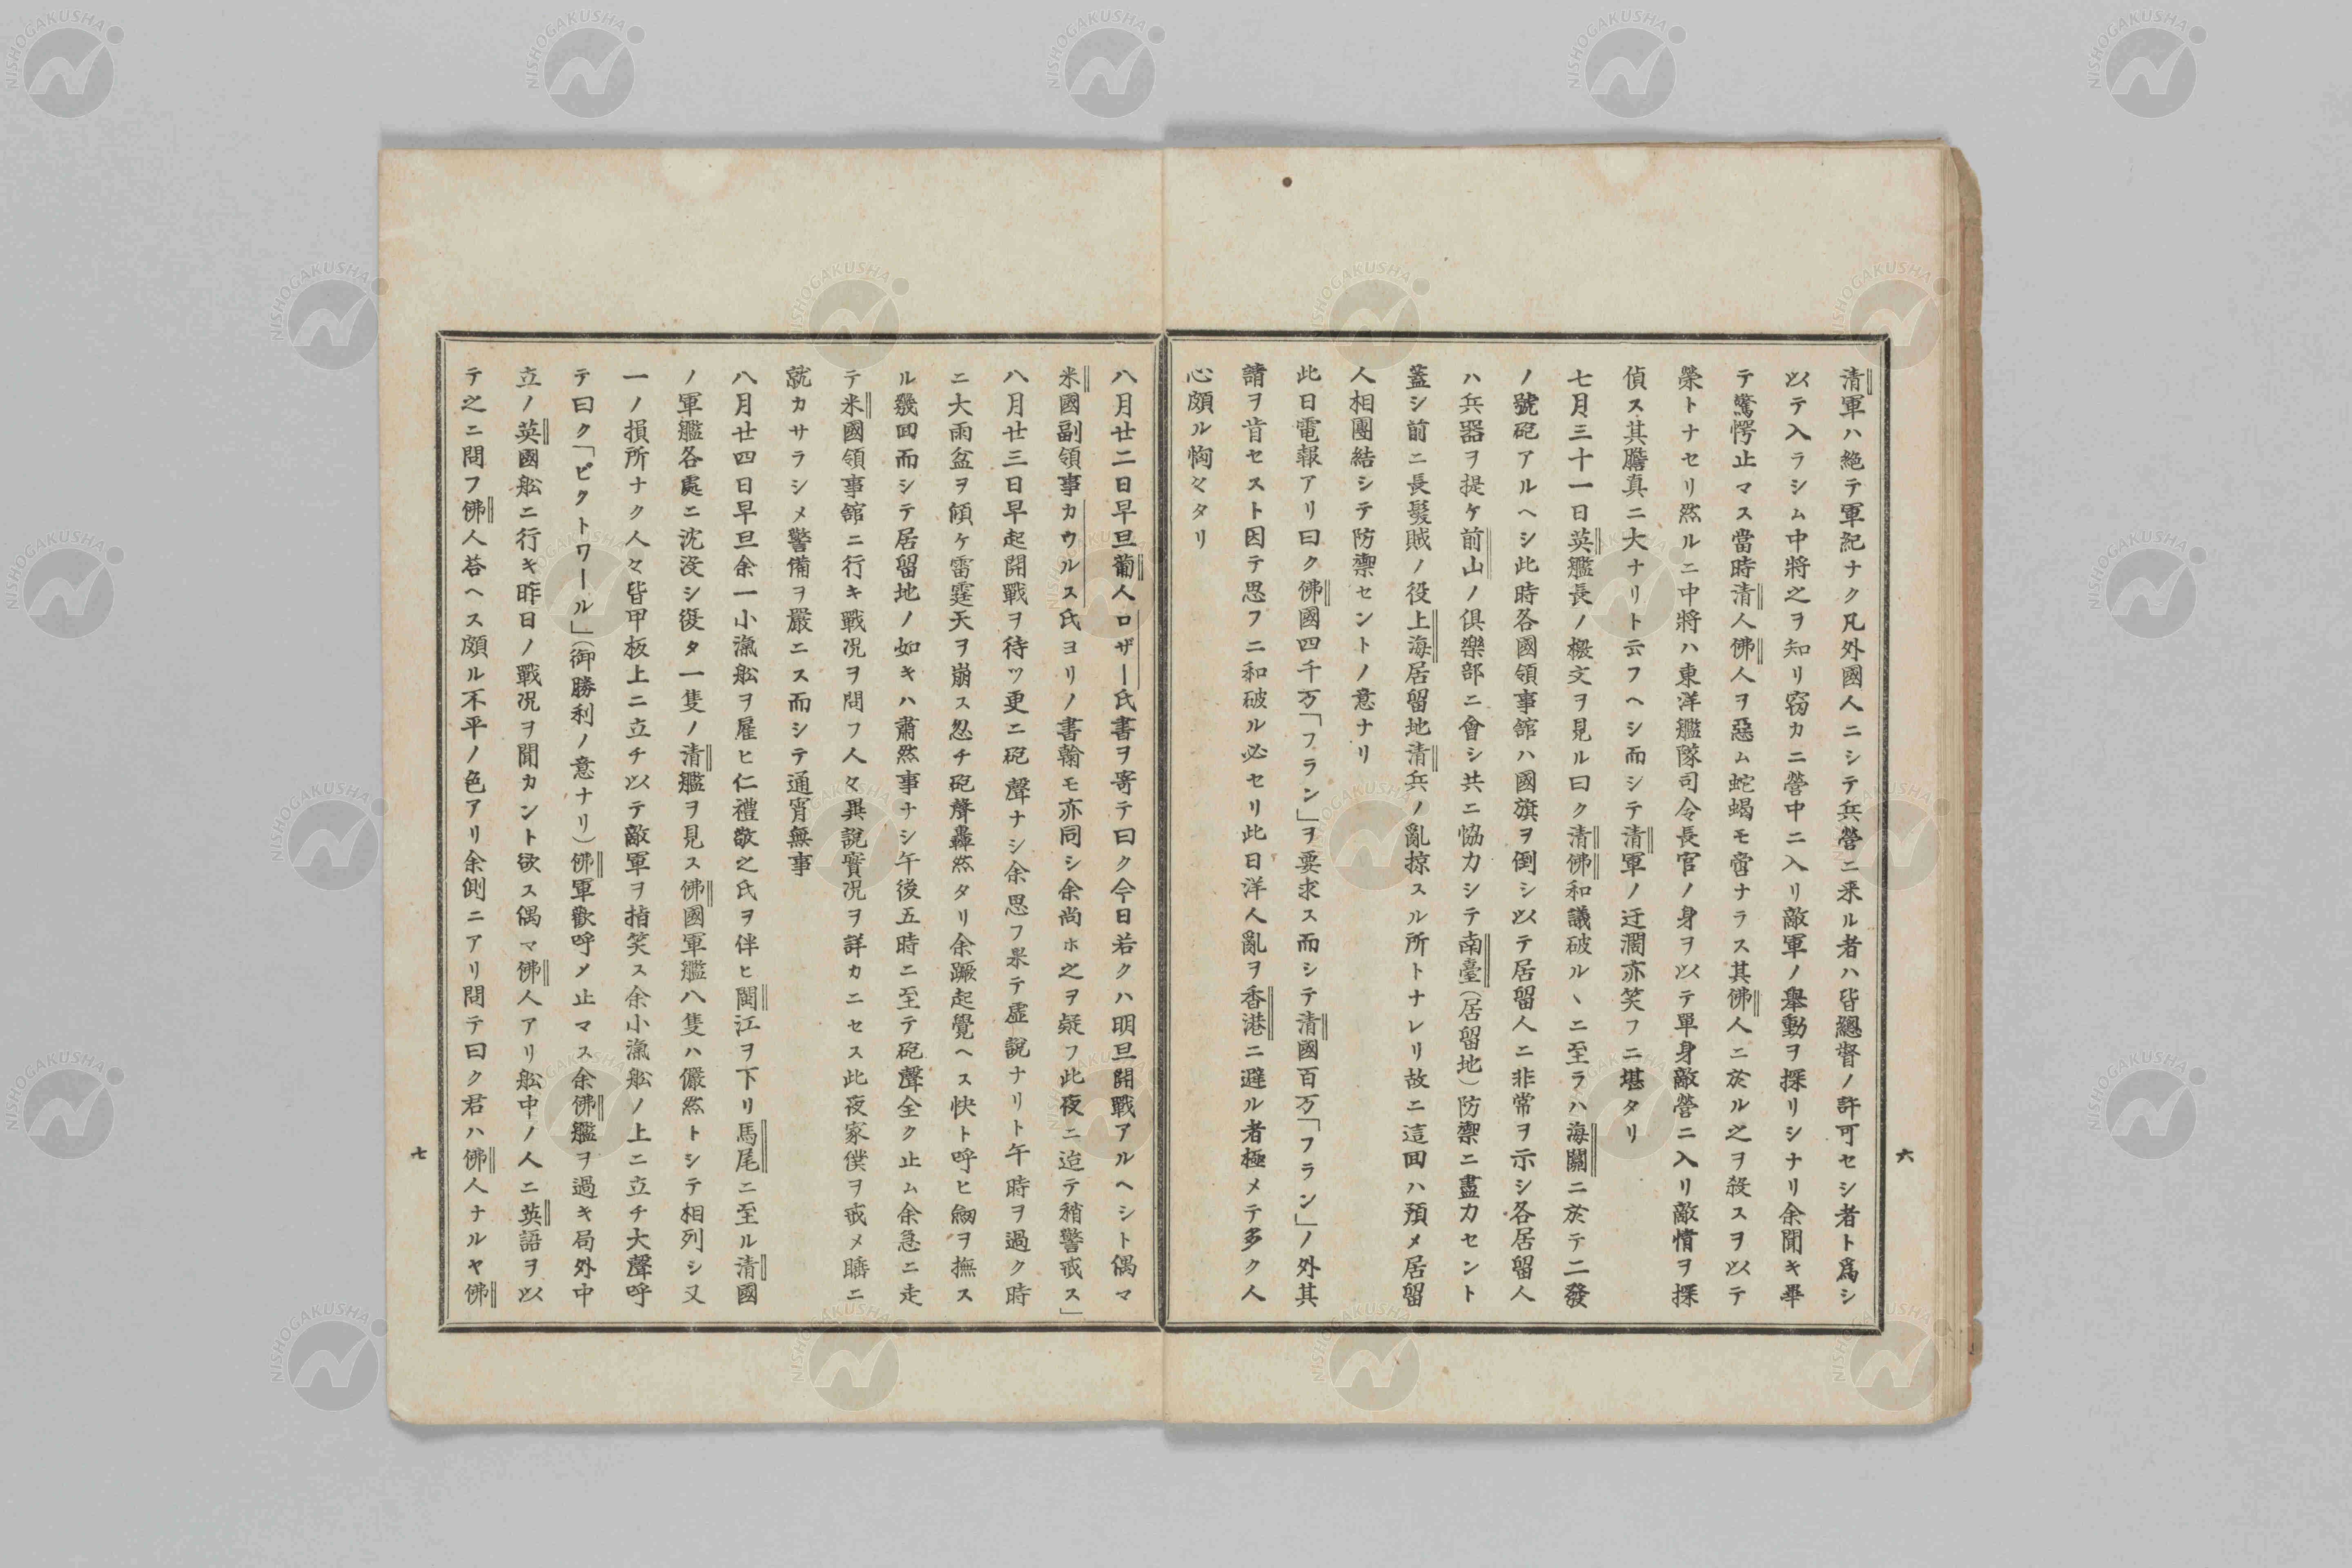 清軍ハ絶テ軍紀ナク凡外國人ニシテ兵營ニ来ル者ハ皆總督ノ許可セシ者ト爲シ
以テ入ラシム中將之ヲ知リ窃カニ營中ニ入リ敵軍ノ擧動ヲ探リシナリ余聞キ畢
テ驚愕止マス當時清人佛人ヲ惡ム蛇蝎モ啻ナラス其佛人ニ於ル之ヲ殺スヲ以テ
榮トナセリ然ルニ中將ハ東洋艦隊司令長官ノ身ヲ以テ單身敵營ニ入リ敵情ヲ探
偵ス其膽真ニ大ナリト云フヘシ而シテ清軍ノ迂濶亦笑フニ堪タリ
七月三十一日英艦長ノ檄文ヲ見ル曰ク清佛和議破ルヽニ至ラハ海關ニ於テ二發
ノ號砲アルヘシ此時各國領事館ハ國旗ヲ倒シ以テ居留人ニ非常ヲ示シ各居留人
ハ兵器ヲ提ケ前山ノ倶樂部ニ會シ共ニ恊力シテ南臺(居留地)防禦ニ盡力セント
蓋シ前ニ長髮賊ノ役上海居留地清兵ノ亂掠スル所トナレリ故ニ這回ハ預メ居留
人相團結シテ防禦セントノ意ナリ
此日電報アリ曰ク佛國四千万「フラン」ヲ要求ス而シテ清國百万「フラン」ノ外其
請ヲ肯セスト因テ思フニ和破ル必セリ此日洋人亂ヲ香港ニ避ル者極メテ多ク人
心頗ル恟々タリ
六
八月廿二日早旦葡人ロザー氏書ヲ寄テ曰ク今日若クハ明旦開戰アルヘシト偶マ
米國副領事カウルス氏ヨリノ書翰モ亦同シ余尚ホ之ヲ疑フ此夜ニ迨テ稍警戒ス」
八月廿三日早起開戰ヲ待ツ更ニ砲聲ナシ余思フ果テ虚説ナリト午時ヲ過ク時
ニ大雨盆ヲ傾ケ雷霆天ヲ崩ス忽チ砲聲轟然タリ余蹶起覺ヘス快ト呼ヒ劔ヲ撫ス
ル幾回而シテ居留地ノ如キハ肅然事ナシ午後五時ニ至テ砲聲全ク止ム余急ニ走
テ米國領事館ニ行キ戰况ヲ問フ人々異説實况ヲ詳カニセス此夜家僕ヲ戒メ瞱ニ
就カサラシメ警備ヲ嚴ニス而シテ通宵無事
八月廿四日早旦余一小漁舩ヲ雇ヒ仁禮敬之氏ヲ伴ヒ閩江ヲ下リ馬尾ニ至ル清國
ノ軍艦各處ニ沈没シ復タ一隻ノ清艦ヲ見ス佛國軍艦八隻ハ儼然トシテ相列シ又
一ノ損所ナク人々皆甲板上ニ立チ以テ敵軍ヲ指笑ス余小漁舩ノ上ニ立チ大聲呼
テ曰ク「ビクトワール」(御勝利ノ意ナリ)佛軍歡呼メ止マス余佛艦ヲ過キ局外中
立ノ英國舩ニ行キ昨日ノ戰况ヲ聞カント欲ス偶マ佛人アリ舩中ノ人ニ英語ヲ以
テ之ニ問フ佛人荅ヘス頗ル不平ノ色アリ余側ニアリ問テ曰ク君ハ佛人ナルヤ佛
七
NISHOGAKUSHA